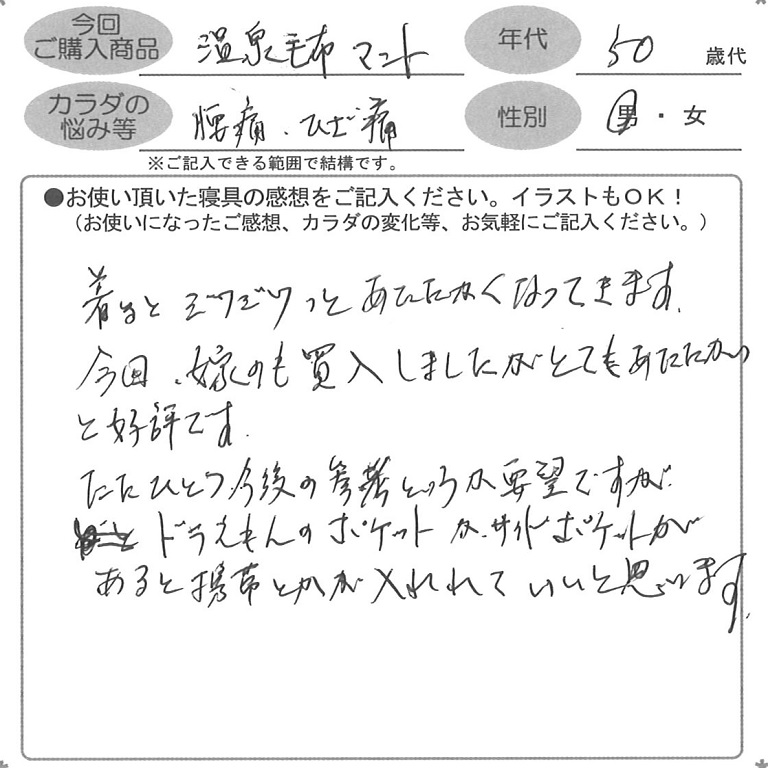 今回
ご購入商品 温泉毛布 マント 年代 50 歳代
カラダの
悩み等 腰痛、ひざ痛 性別 男・女
※ご記入できる範囲で結構です。
●お使い頂いた寝具の感想をご記入ください。イラストもOK!
(お使いになったご感想、カラダの変化等、お気軽にご記入ください。)
着ると ジワジワっと あたたかくなってきます。
今回、嫁のも買入しましたがとてもあたたかい
と好評です。
ただひとつ今後の参考というか要望ですが
ドラえもんのポケットか、サイドポケットが
あると携帯とかが入れれていいと思います。